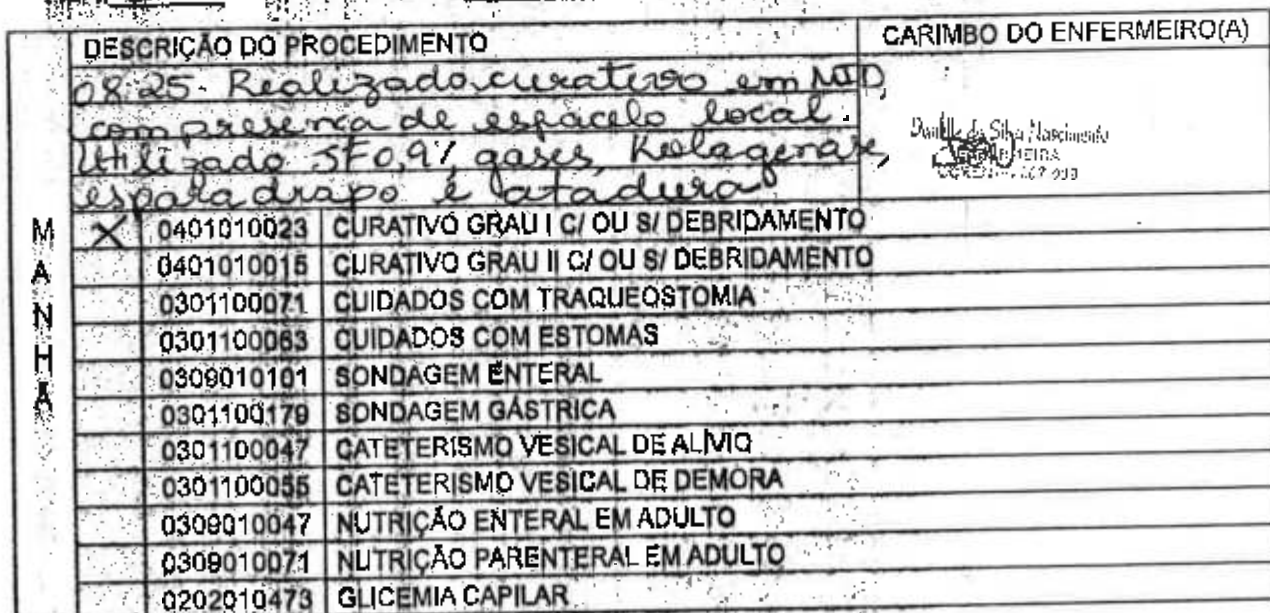 DESCRIÇÃO DO PROCEDIMENTO
CARIMBO DO ENFERMEIRO(A)
08:25. Realizado curativo em MID,
com presença de espacelo local.
Utilizado SF0,9% gases, Kolagenase,
esparadrapo e atadura
da Silva Nascimento
MANHÃ
X 0401010023 CURATIVO GRAU I C/ OU S/ DEBRIDAMENTO
0401010015 CURATIVO GRAU II C/ OU S/ DEBRIDAMENTO
0301100071 CUIDADOS COM TRAQUEOSTOMIA
0301100063 CUIDADOS COM ESTOMAS
0309010101 SONDAGEM ENTERAL
0301100179 SONDAGEM GÁSTRICA
0301100047 CATETERISMO VESICAL DE ALÍVIO
0301100055 CATETERISMO VESICAL DE DEMORA
0309010047 NUTRIÇÃO ENTERAL EM ADULTO
0309010071 NUTRIÇÃO PARENTERAL EM ADULTO
0202010473 GLICEMIA CAPILAR